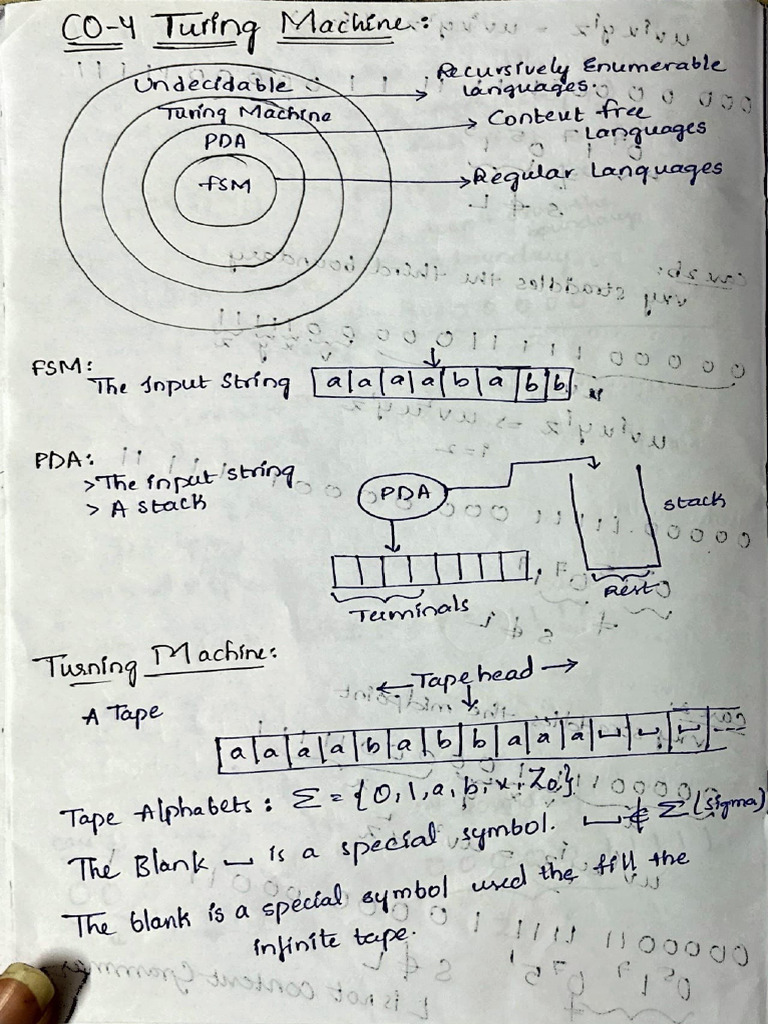 CO-4 Turing Machine:
Undecidable
Recursively Enumerable
languages.
Turing Machine
Content free
Languages
PDA
FSM
Regular Languages
FSM:
The Input String a a a a b a b b
PDA:
> The input string
> A stack
PDA
stack
Terminals
Turning Machine:
← Tape head →
A Tape
a a a a b a b b a a a ⌴ ⌴ ⌴ ---
Tape Alphabets: Σ = {0, 1, a, b, x, Z0}
The Blank ⌴ is a special symbol. ⌴ ∉ Σ (sigma)
The blank is a special symbol used the fill the
infinite tape.